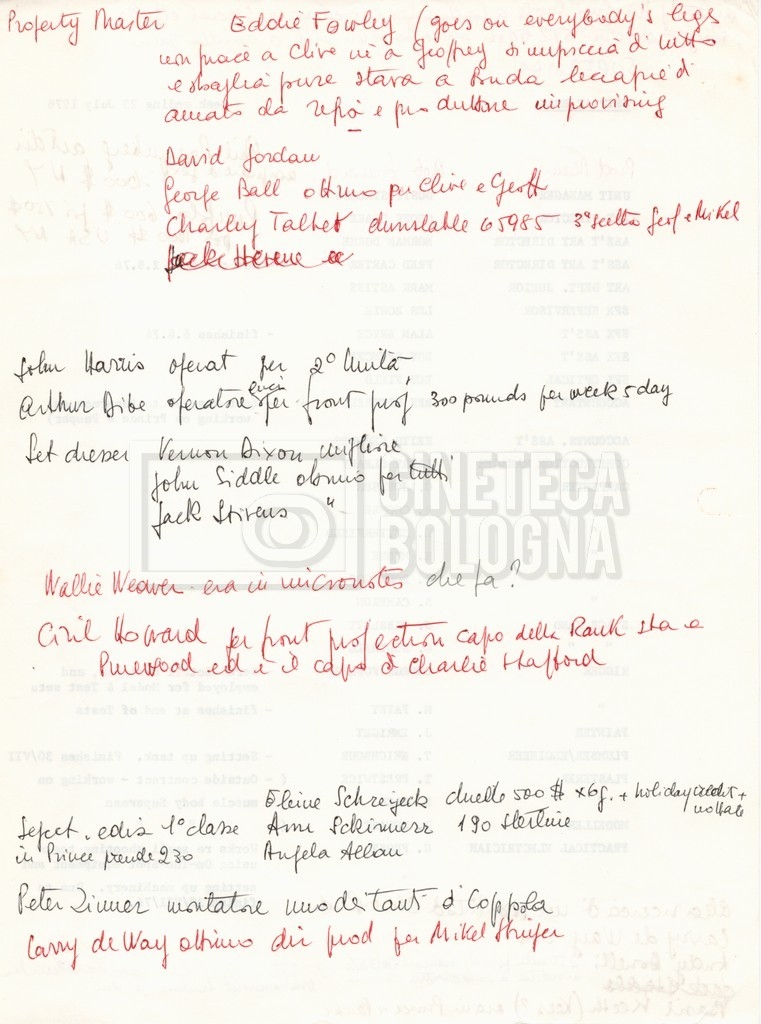 Property Master Eddie Fowley (goes on everybody's legs
non piace a Clive nè a Geoffrey si impiccia di tutto
e sbaglia pure stava a Buda leccapié di
amato da regia e produttore improvising
David Jordan
George Ball ottimo per Clive e Geoff
Charley Talbet dunstable 65985 3ª scelta Geof e Mikel
John Harris operat per 2º Unità
Arthur Dibe operatore per front proj 300 pounds per week 5 day
Set dresser Vernon Dixon migliore
John Siddle ottimo per tutti
Jack Stivens "
CINETECA
BOLOGNA
Wallie Weaver era in micronotes che fa?
Ciril Howard per front projection capo della Rank sta a
Pinewood ed è il capo di Charlie Stafford
Eleine Schreyeck 500 $ x 6 g. + holiday credit +
Segret. ediz 1ª classe Ann Skinner 190 sterline
in Prince prende 230 Angela Allan
Peter Zinner montatore uno dei tanti di Coppola
Carry de Way ottimo dir prod per Mikel